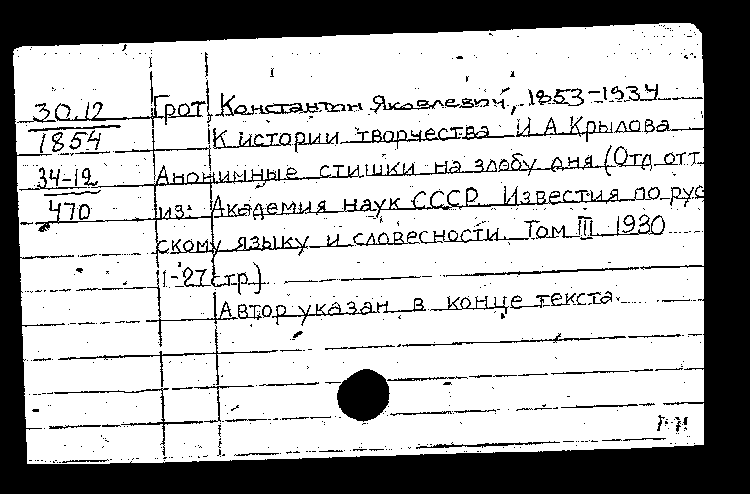 30.12
1854
34-12
470
Грот, Константин Яковлевич, 1853-1934
К истории творчества И.А.Крылова
Анонимные стишки на злобу дня (Отд отт
из: Академия наук СССР. Известия по рус
скому языку и словесности. Том III 1930
1-27 стр.)
Автор указан в конце текста.